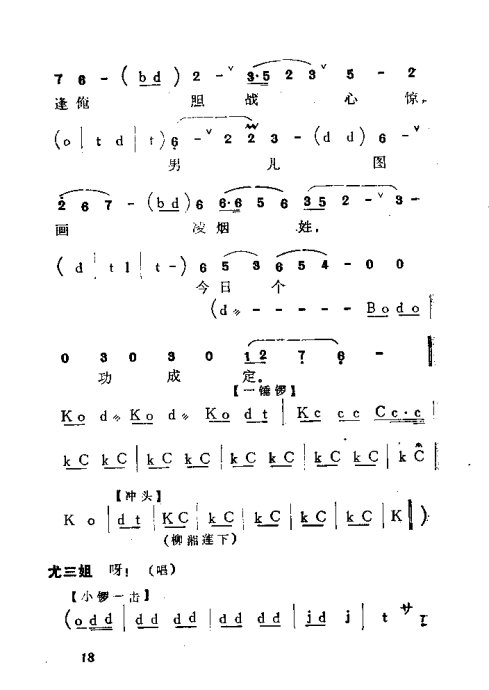 7 6 - ( b d ) 2 - ˅ 3·5 2 3 ˅ 5 - 2
逢俺 胆 战 心 惊,
( o | t d | t ) 6 - ˅ 2 2 3 - ( d d ) 6 - ˅
男 儿 图
2 6 7 - ( b d ) 6 6·6 5 6 3 5 2 - ˅ 3 -
画 凌烟 姓,
( d | t l | t - ) 6 5 3 6 5 4 - 0 0
今日 个
( d〃 - - - - - B o d o |
0 3 0 3 0 1 2 7 6 -
功 成 定。
【一锤锣】
K o d〃 K o d〃 K o d t | K c c c C c·c |
k C k C | k C k C | k C k C | k C k C | k C
【冲头】
K o | d t | K C | k C | k C | k C | k C | K ‖ )
(柳湘莲下)
尤三姐 呀! (唱)
【小锣一击】
( o d d | d d d d | d d d d | j d j | t サ I
18